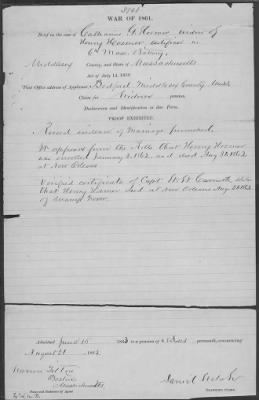 WAR OF 1861.
Brief in the case of Catharine G. Hosmer, widow of
Henry Hosmer,
6th Mass. Battery,
Middlesex County, and State of Massachusetts
Act of July 14, 1862.
Post Office address of Applicant: Bedford Middlesex County, Mass
Claim for
Declaration and Identification in due Form.
PROOF EXHIBITED.
Record evidence of Marriage furnished.
It appears from the Rolls that Henry Hosmer
was enrolled January 2, 1862, and died Aug 1862
at New Orleans.
Verified certificate of Capt. W. W. Carruth
that Henry Hosmer died at New Orleans Aug 1862
of swamp fever.
Admitted June 15 1863 to a pension of 8 Dollars per month, commencing
August 21 1862.
Boston
Massachusetts